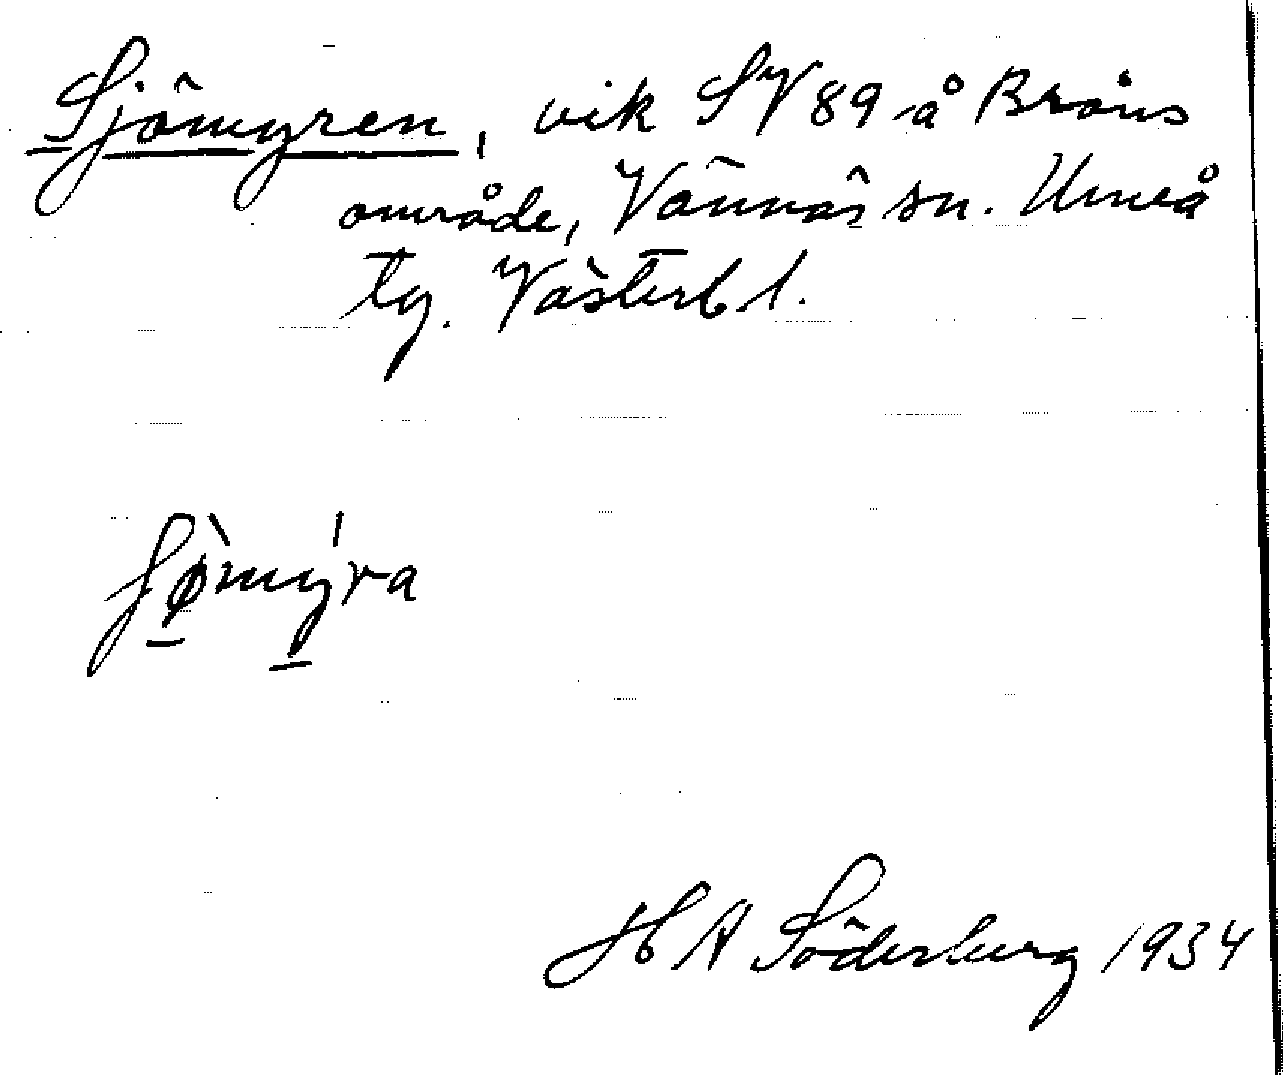 Sjömyren, vik SV 89 å Bråns
område, Vännäs sn. Umeå
tg. Västerb l.
H A Söderberg 1934